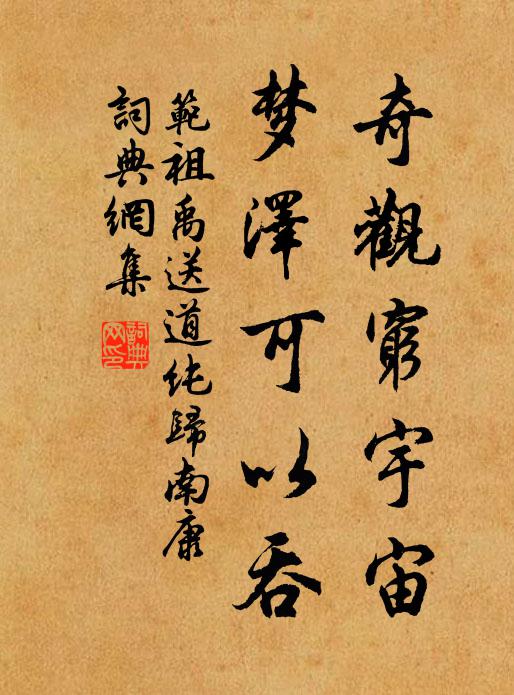 奇觀窮宇宙
梦澤可以吞
範祖禹送道純歸南康
詞典網集
詞典网印